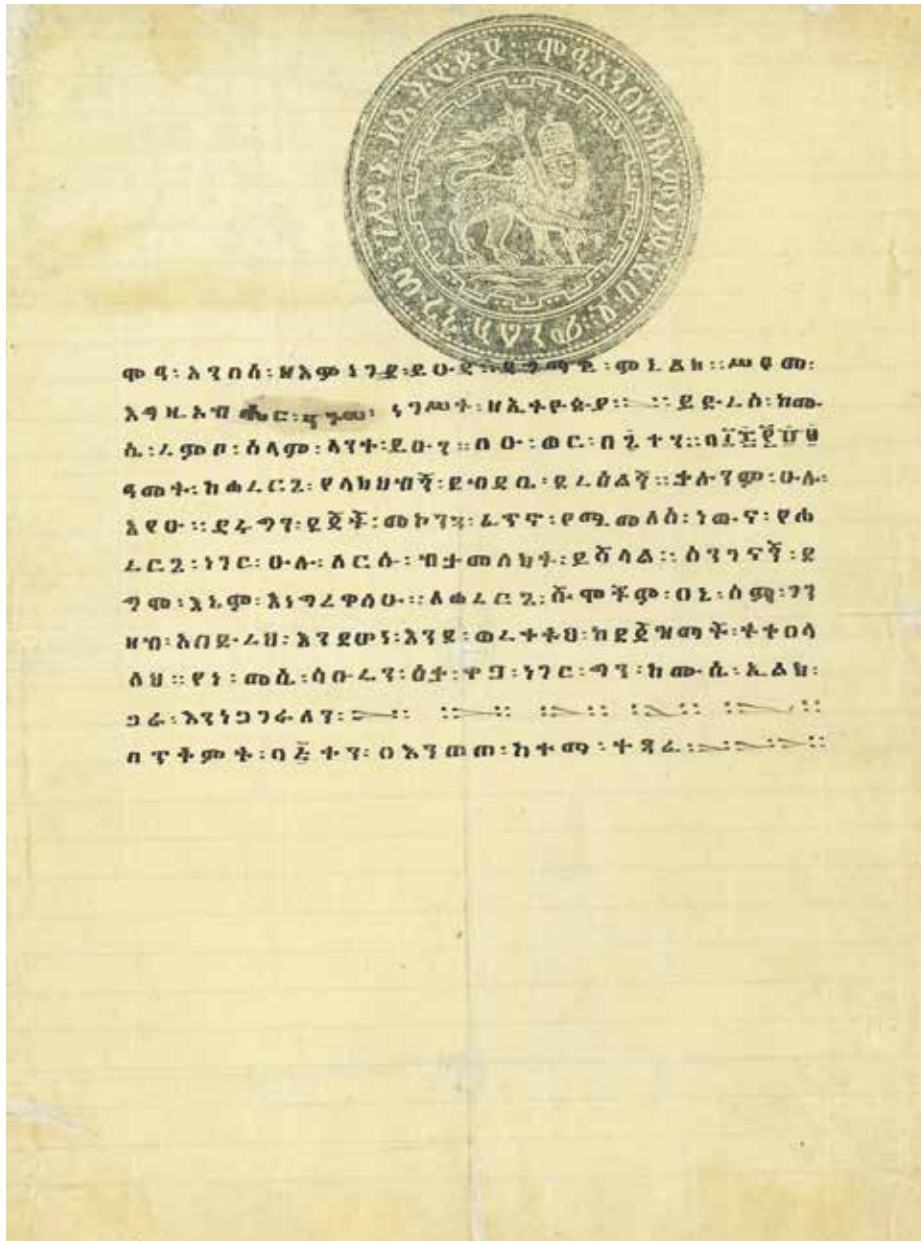 ሞዓ፡አንበሳ፡ዘእምነገደ፡ይሁዳ፡ምኒልክ፡ንጉሠ፡ነገሥት፡ዘኢትዮጵያ።
ሞዓ፡አንበሳ፡ዘእምነገደ፡ይሁዳ።ዳግማዊ፡ምኒልክ።ሥዩመ፡
እግዚአብሔር፡ንጉሠ፡ነገሥት፡ዘኢትዮጵያ።ይድረስ፡ከሙ
ሴ፡ረምቦ፡ሰላም፡ላንተ፡ይሁን።ወር፡በ፬ተን።በ፲፰፻፹፱
ዓመት፡ከሐረርጌ፡የላክህብኝ፡ደብዳቤ፡ደረሰልኝ።ቃሉንም፡ሁሉ፡
አየሁ።ድሩግን፡ደጃች፡መኮንን፡ፈጥኖ፡የሚመለስ፡ነውና፡የሐ
ረርጌ፡ነገር፡ሁሉ፡ለርሱ፡ብታመለክት፡ይሻላል።ስንገናኝ፡ደ
ግሞ፡እኔም፡እነግረዋለሁ።ለሐረርጌ፡ሹሞችም፡በኔ፡ስም፡ገን
ዘብ፡አበድረህ፡እንደሆነ፡እንደ፡ከደጃዝማች፡ትቀበላ
ለህ።የነ፡መሴ፡ሳቡረን፡ዕታ፡ነገር፡ግን፡ከሙሴ፡ኢልክ፡
ጋራ፡እንነጋገራለን፡
በጥቅምት፡በ፭ተን፡በእንጦጦ፡ከተማ፡ተጻፈ፡